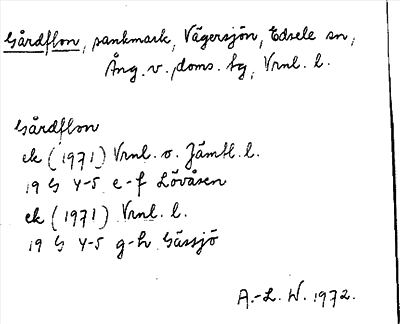 Gårdflon, sankmark, Vägersjön, Edsele sn,
Ång. v. doms. tg, Vrnl. l.
Gårdflon
ek (1971) Vrnl. o. Jämtl. l.
19 G 4-5 e-f Lövåsen
ek (1971) Vrnl. l.
19 G 4-5 g-h Gåssjö
A.-L. W. 1972.